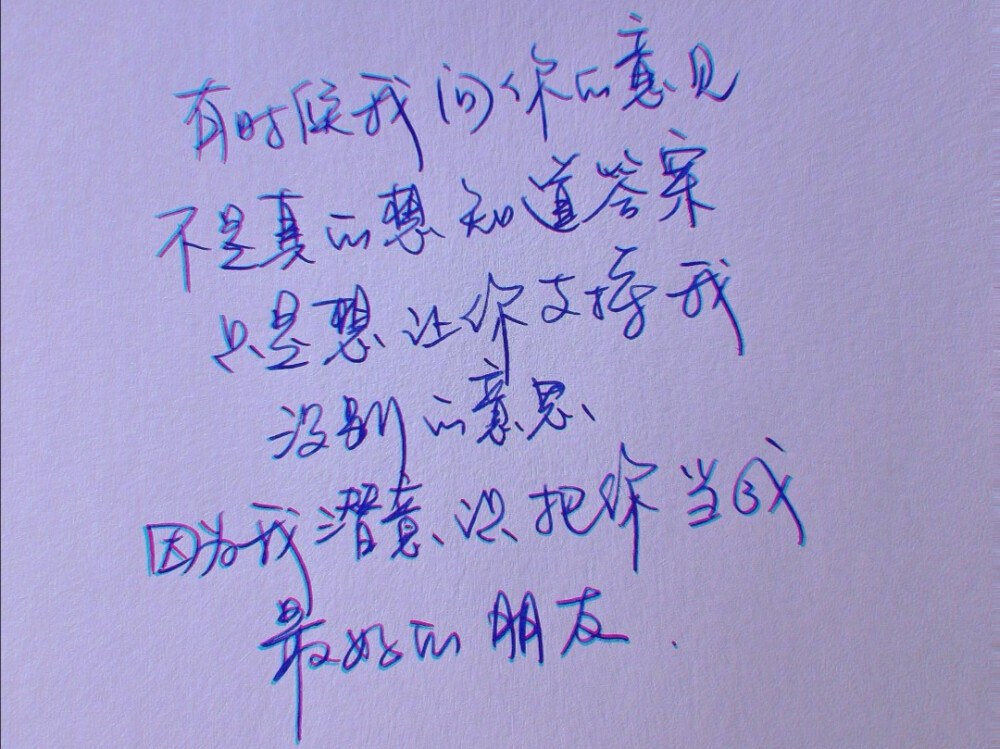 有时候我问你的意见
不是真的想知道答案
只是想让你支持我
没别的意思
因为我潜意识把你当成
最好的朋友.